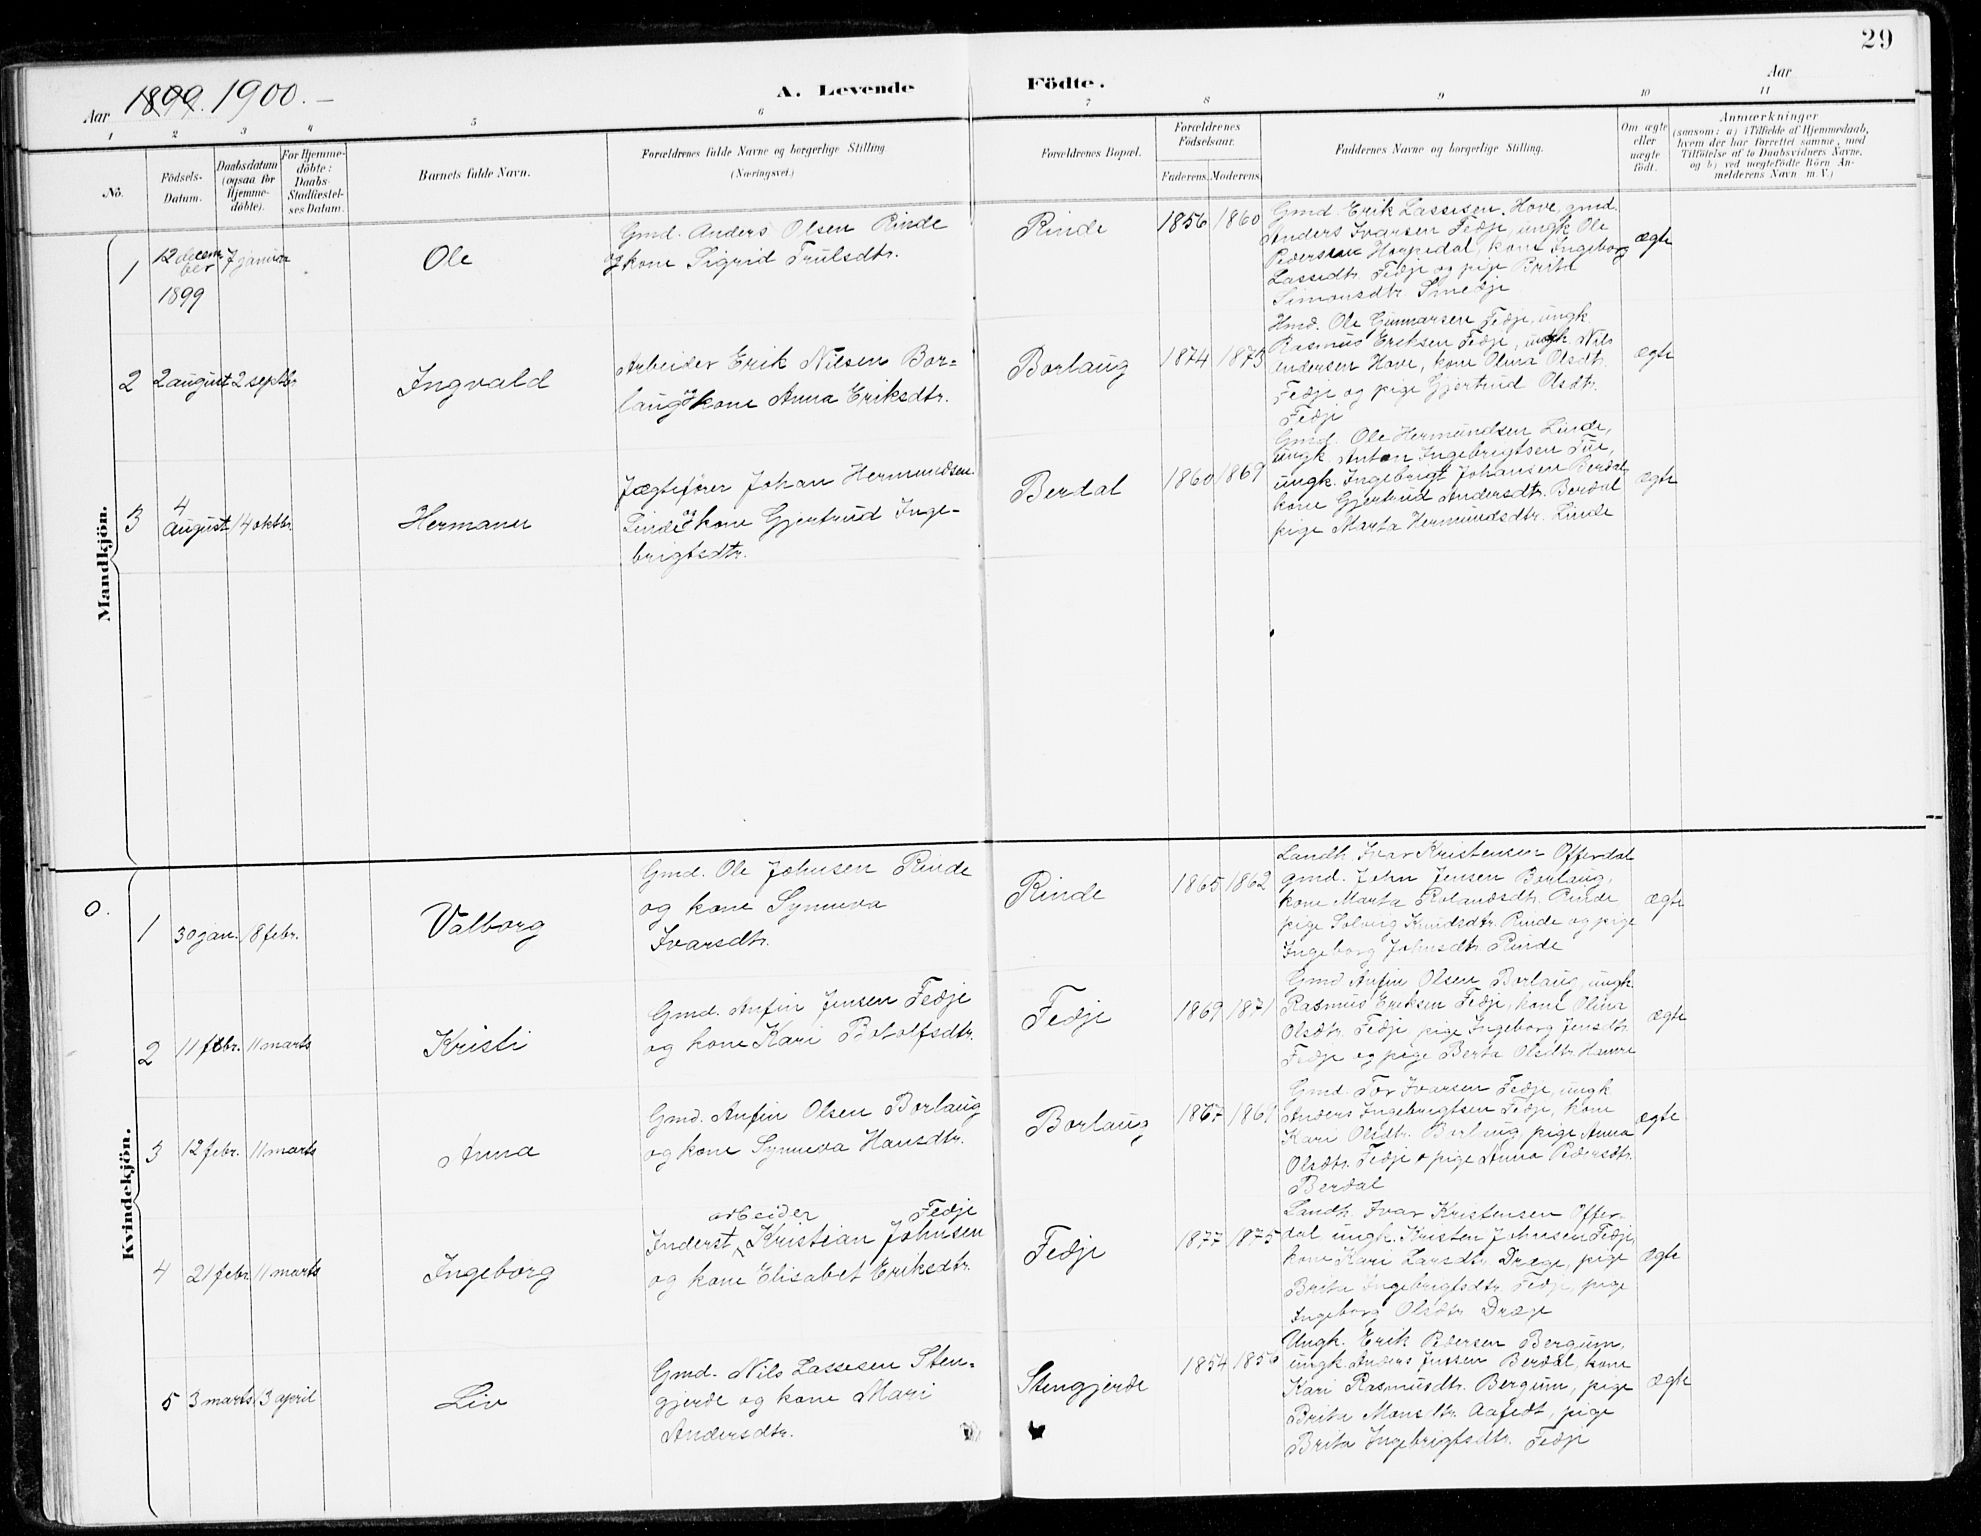 29
Aar 1899. 1900. –
A. Levende Födte.
Aar
1 2 3 4 5 6 7 8 9 10 11
No.
Födsels-
Datum.
Daabsdatum
(ogsaa for
Hjemme-
döbte).
For Hjemme-
döbte:
Daabs-
Stadfæstel-
ses Datum.
Barnets fulde Navn.
Forældrenes fulde Navne og borgerlige Stilling
(Næringsvei.)
Forældrenes Bopæl.
Forældrenes
Födselsaar.
Faderens. Moderens.
Faddernes Navne og borgerlige Stilling.
Om ægte
eller
uægte
födt.
Anmærkninger
(saasom: a) i Tilfælde af Hjemmedaab,
hvem der har forrettet samme, med
Tilföielse af to Daabsvidners Navne,
og b) ved uægtefödte Börn An-
melderens Navn m. V.)
Mandkjön.
1
12 decem
ber
1899
7 januar
Ole
Gmd. Anders Olsen Rinde
og kone Sigrid Trulsdtr.
Rinde
1856 1860
Gmd. Erik Lassesen Hove, gmd.
Anders Ivarsen Fedje, ungk Ole
Pedersen Horpedal, kone Ingeborg
Lassedtr. Fedje og pige Brita
Simonsdtr. Smedje
ægte
2
2 august
2 septbr
Ingvald
Arbeider Erik Nilsen Bor=
laug og kone Anna Eriksdtr.
Borlaug
1874 1873
Hmd. Ole Gunnarsen Fedje, ungk
Rasmus Eriksen Fedje, ungk. Nils
Andersen Hove, kone Olina Olsdtr.
Fedje og pige Gjertrud Olsdtr.
Fedje
ægte
3
4
august
14 oktbr.
Hermann
Jægtefører Johan Hermundsen
Linde og kone Gjertrud Inge-
brigtsdtr.
Berdal
1860 1869
Gmd. Ole Hermundsen Linde,
ungk. Anton Ingebrigtsen Tue,
ungk. Ingebrigt Johansen Berdal
kone Gjertrud Andersdtr. Berdal
pige Marta Hermundsdtr. Linde
ægte
Kvindekjön.
0.
1
30 jan.
18 febr.
Valborg
Gmd. Ole Johnsen Rinde
og kone Synneva
Ivarsdtr.
Rinde
1865 1862
Landh. Ivar Kristensen Offerdal
gmd. John Jensen Borlaug,
kone Marta Rolandsdtr. Rinde,
pige Solveig Knudsdtr. Rinde og pige
Ingeborg Johnsdtr. Rinde
ægte
2
11 febr.
11 marts
Kristi
Gmd. Anfin Jensen Fedje
og kone Kari Botolfsdtr.
Fedje
1869 1871
Gmd Anfin Olsen Borlaug, ungk.
Rasmus Eriksen Fedje, kone Olina
Olsdtr. Fedje, pige Ingeborg Jensdtr.
Fedje og pige Berta Olsdtr Hamre
ægte
3
12 febr.
11 marts
Anna
Gmd. Anfin Olsen Borlaug
og kone Synneva Hansdtr.
Borlaug
1867 1861
Gmd. Tor Ivarsen Fedje, ungk
Anders Ingebrigtsen Fedje, kone
Kari Olsdtr. Borlaug, pige Anna
Olsdtr. Fedje & pige Anna Pedersdtr.
Berdal
ægte
4
21 febr
11 marts
Ingeborg
arbeider Fedje
Inderst Kristian Johnsen
og kone Elisabet Eriksdtr.
Fedje
1877 1875
Landh. Ivar Kristensen Offer-
dal ungk. Kristen Johnsen Fedje,
kone Kari Larsdtr. Drege, pige
Brita Ingebrigtsdtr. Fedje, pige
Ingeborg Olsdtr Dræge
ægte
5
3 marts
13 april
Liv
Gmd. Nils Lassesen Sten-
gjerde og kone Mari
Andersdtr.
Stengjerde
1854 1856
Ungk. Erik Pedersen Bergum,
ungk. Anders Jensen Berdal, kone
Kari Rasmusdtr. Bergum, pige
Brita Monsdtr. Aafedt, pige
Brita Ingebrigtsdtr. Fedje
ægte